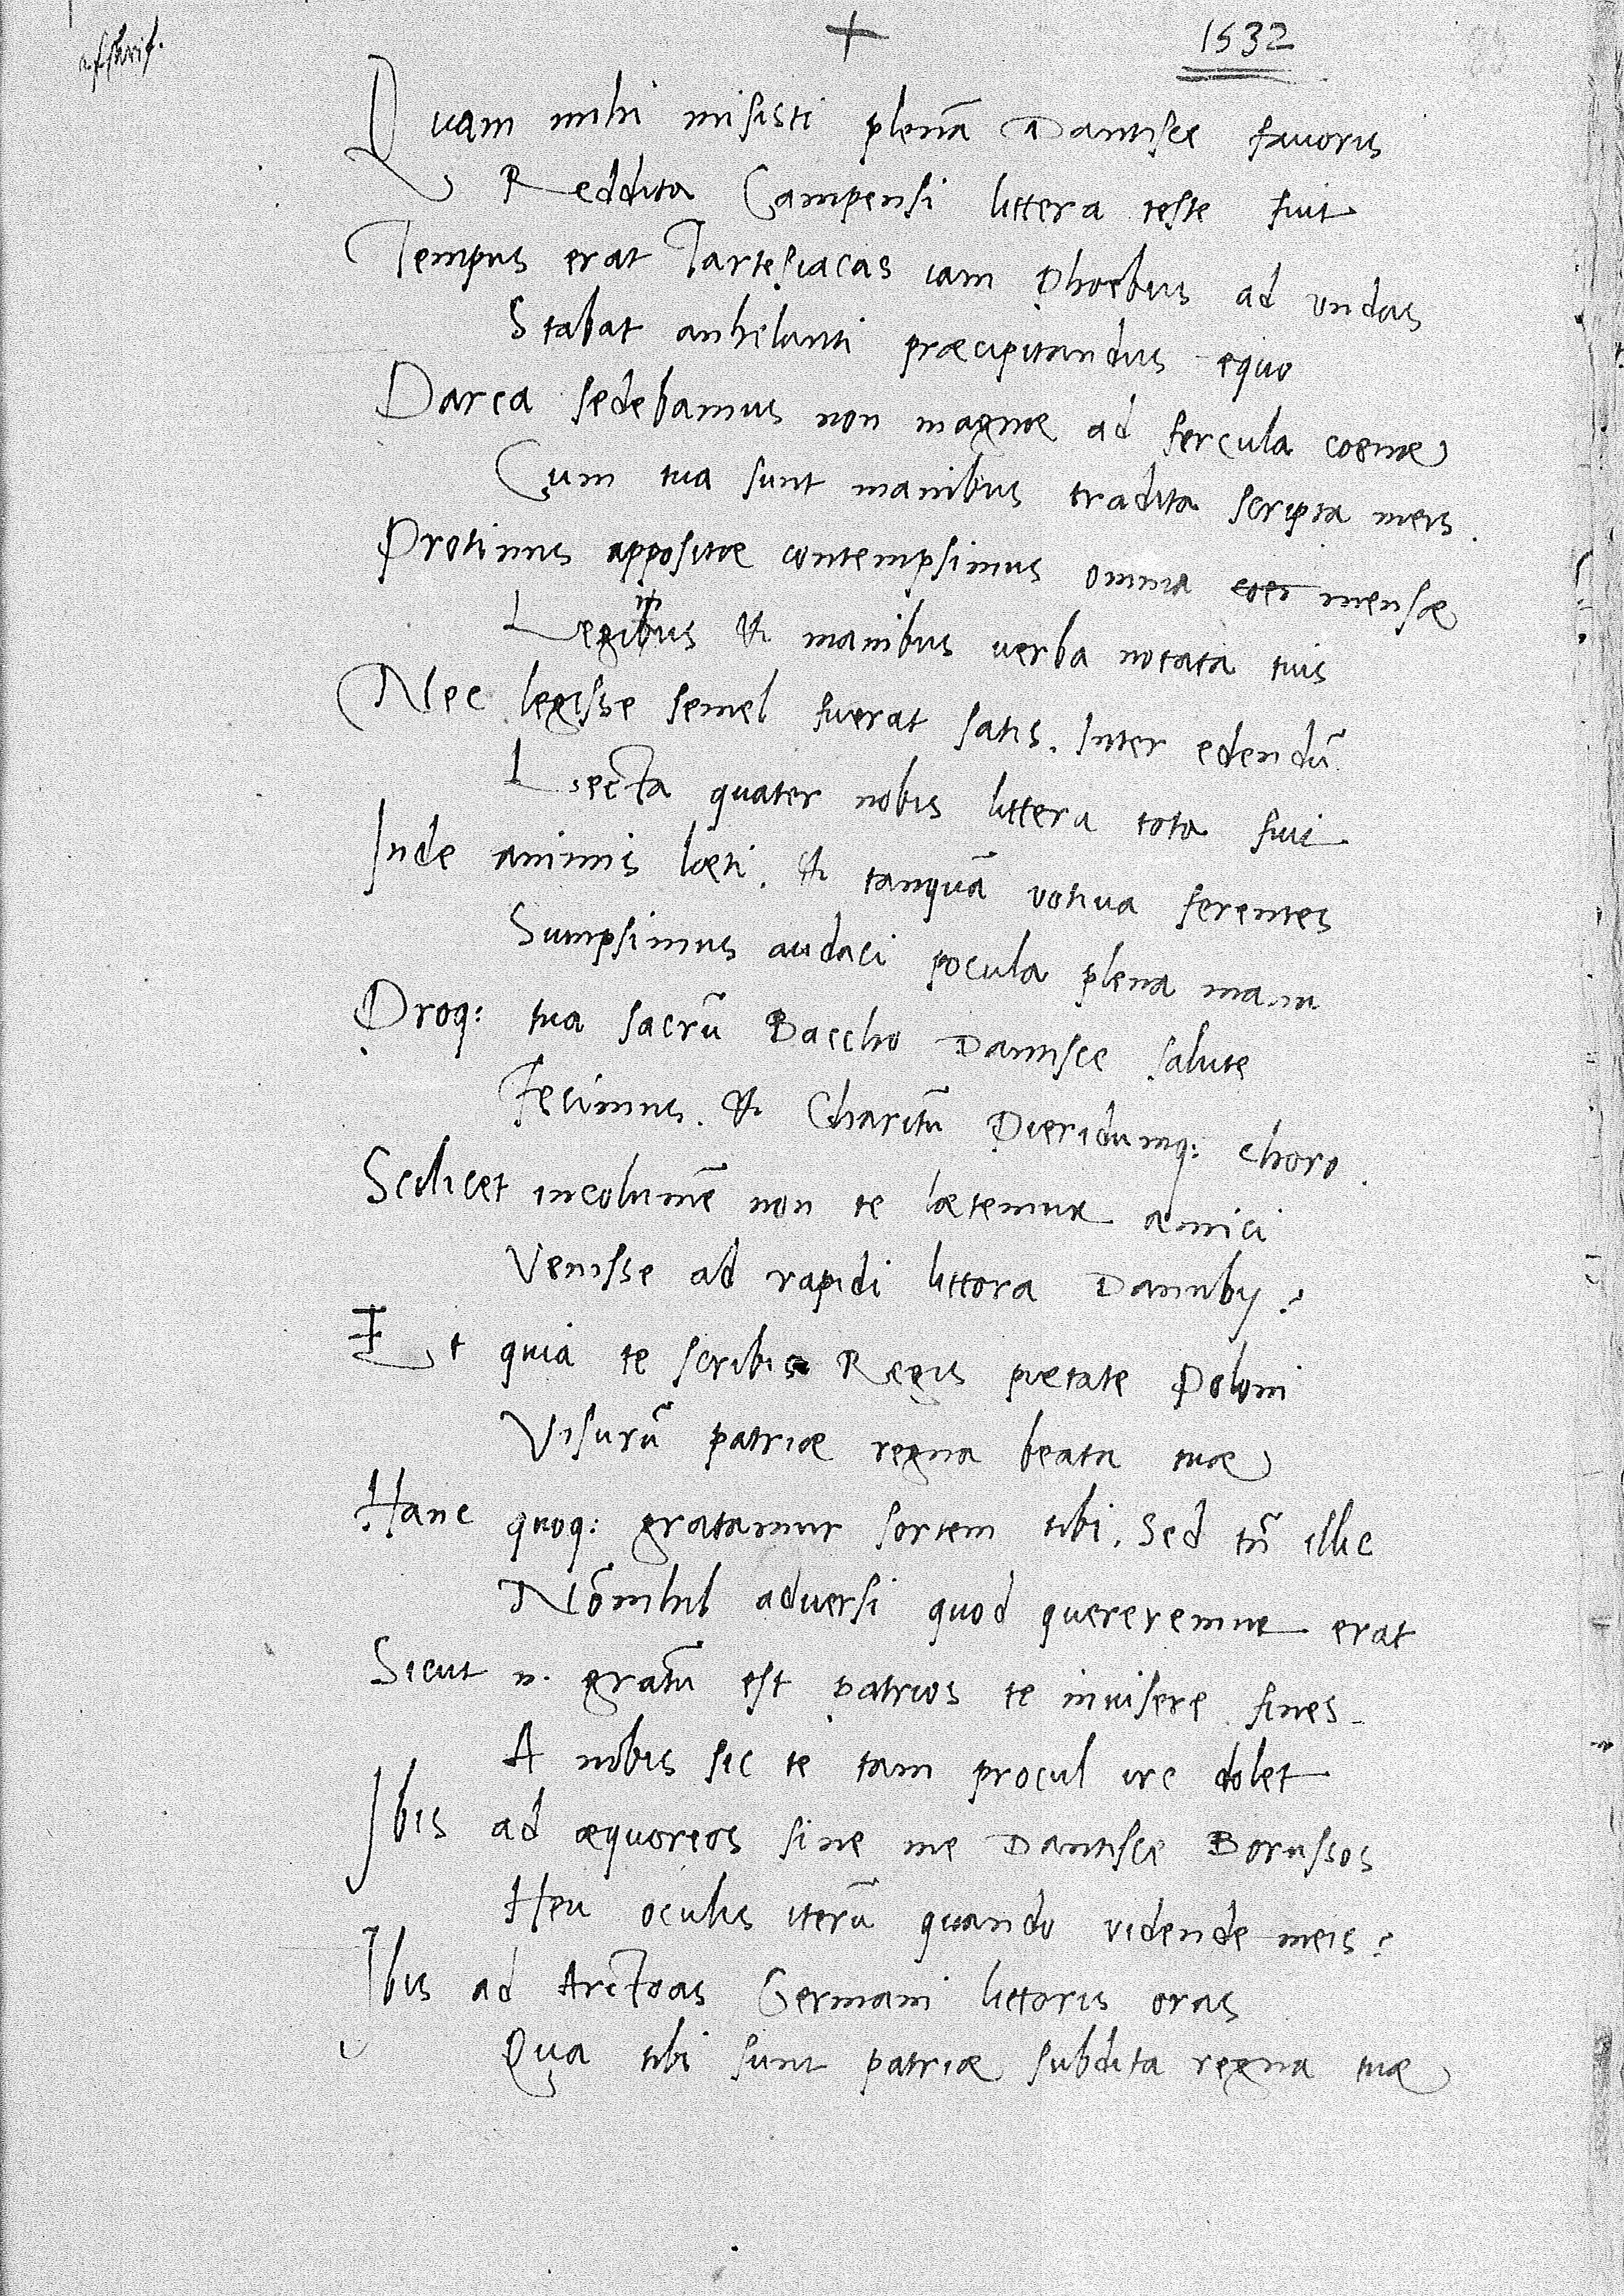 + 1532
Quam mihi misisti plenā Dantisce fauoris
Reddita Campensi littera teste fuit
Tempus erat Tartesiacas iam Phoebus ad vndas
Stabat anhelanti præcipitandus equo
Parca sedebamus non magnæ ad fercula coenæ
Cum tua sunt manibus tradita scripta meis.
Protinus appositæ contempsimus omnia mensæ
Legimus & manibus uerba notata tuis
Nec legisse semel fuerat satis. Inter edendū
Lecta quater nobis littera tota fuit
Inde animis læti. & tanquā votiua ferentes
Sumpsimus audaci pocula plena manu
Proq: tua sacrū Baccho Dantisce salute
Fecimus. & Charitū Pieridumq: choro.
Scilicet incolumē non te lætemur amici
Venisse ad rapidi littora Danuby?
Et quia te scribis Regis pietate Poloni
Visurū patriæ regna beata tuæ
Hanc quoq: gratamur sortem tibi. Sed tn̄ illic
Nōnihil aduersi quod quereremur erat
Sicut n. gratū est patrios te inuisere fines
A nobis sic te tam procul ire dolet
Ibis ad æquoreos sine me Dantisce Borussos
Heu oculis iterū quando vidende meis?
Ibis ad Arctoas Germani littoris oras
Qua tibi sunt patriæ subdita regna tuæ